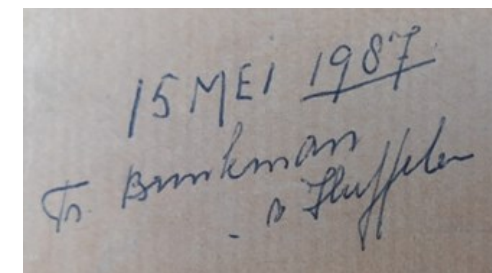 15 MEI 1987
Tr. Brinkman
- v Huffelen